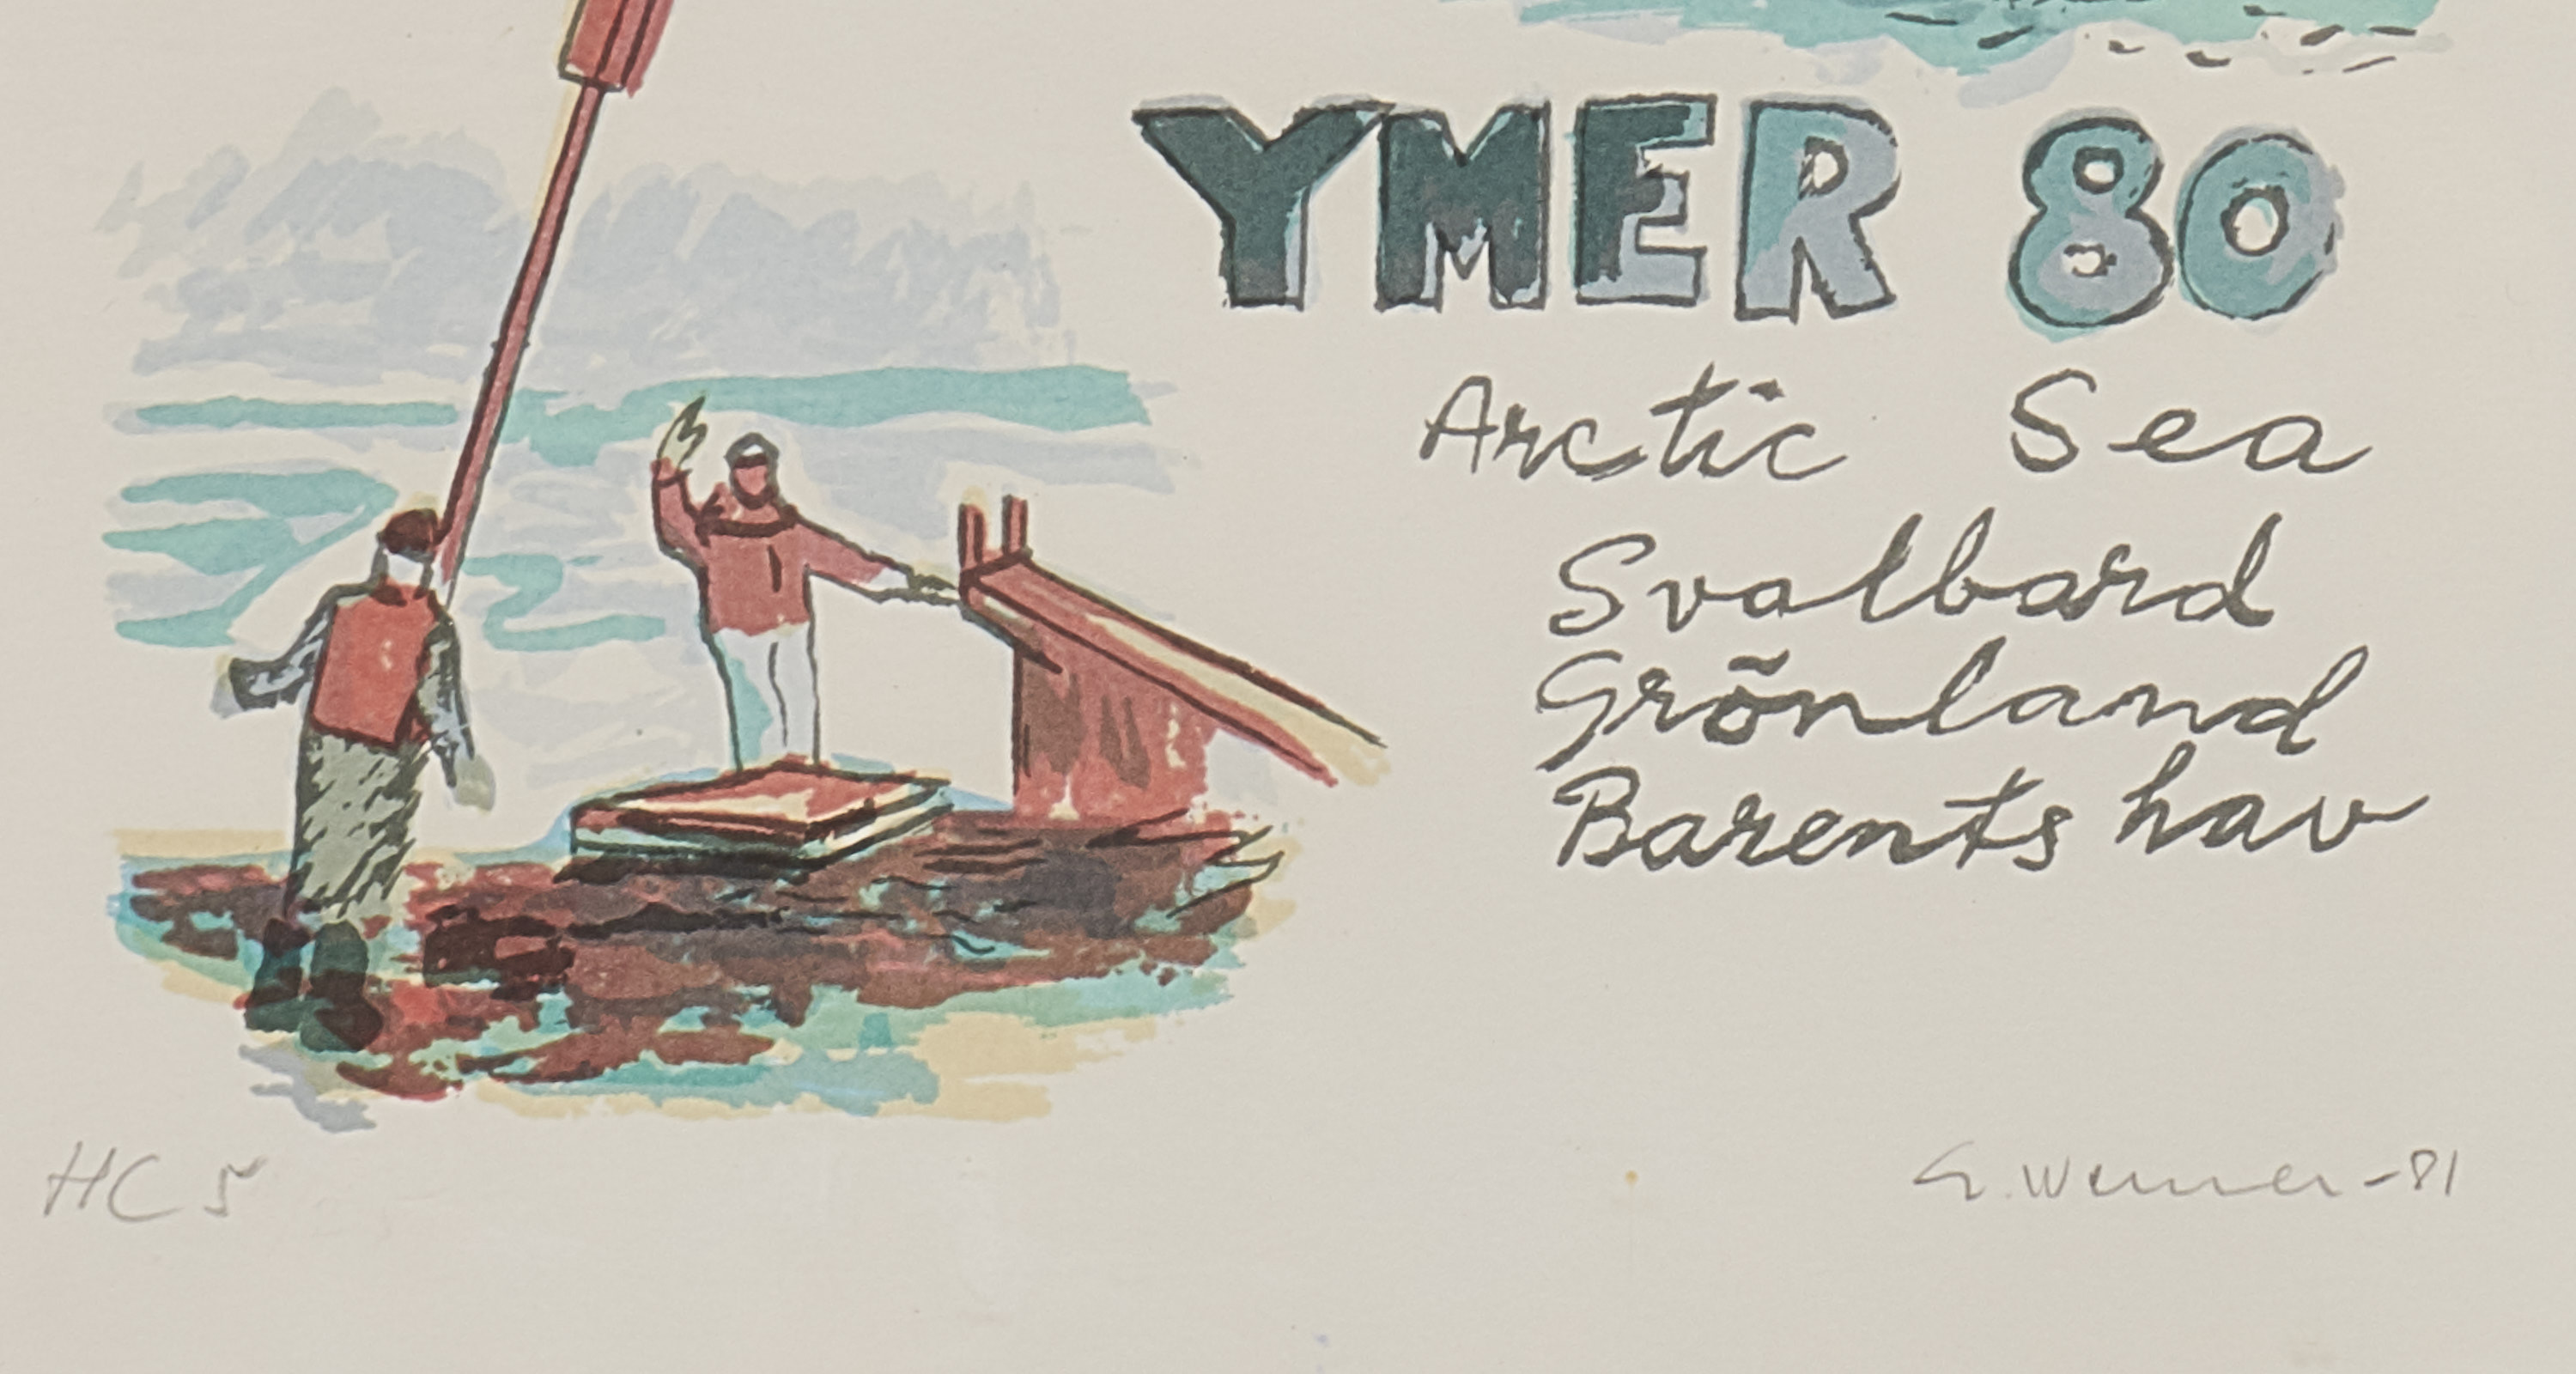 YMER 80
Arctic Sea
Svalbard
Grönland
Barents hav
HC 5
G. Werner-81